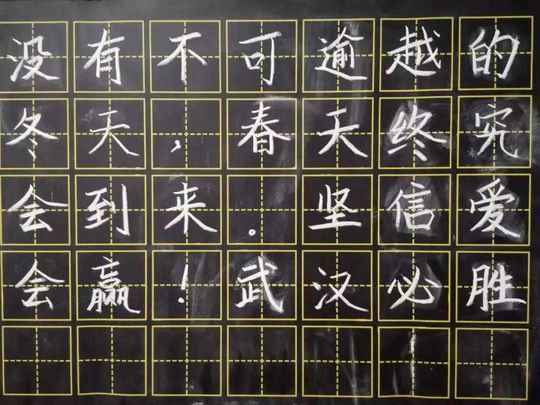 没有不可逾越的
冬天,春天终究
会到来。坚信爱
会赢!武汉必胜